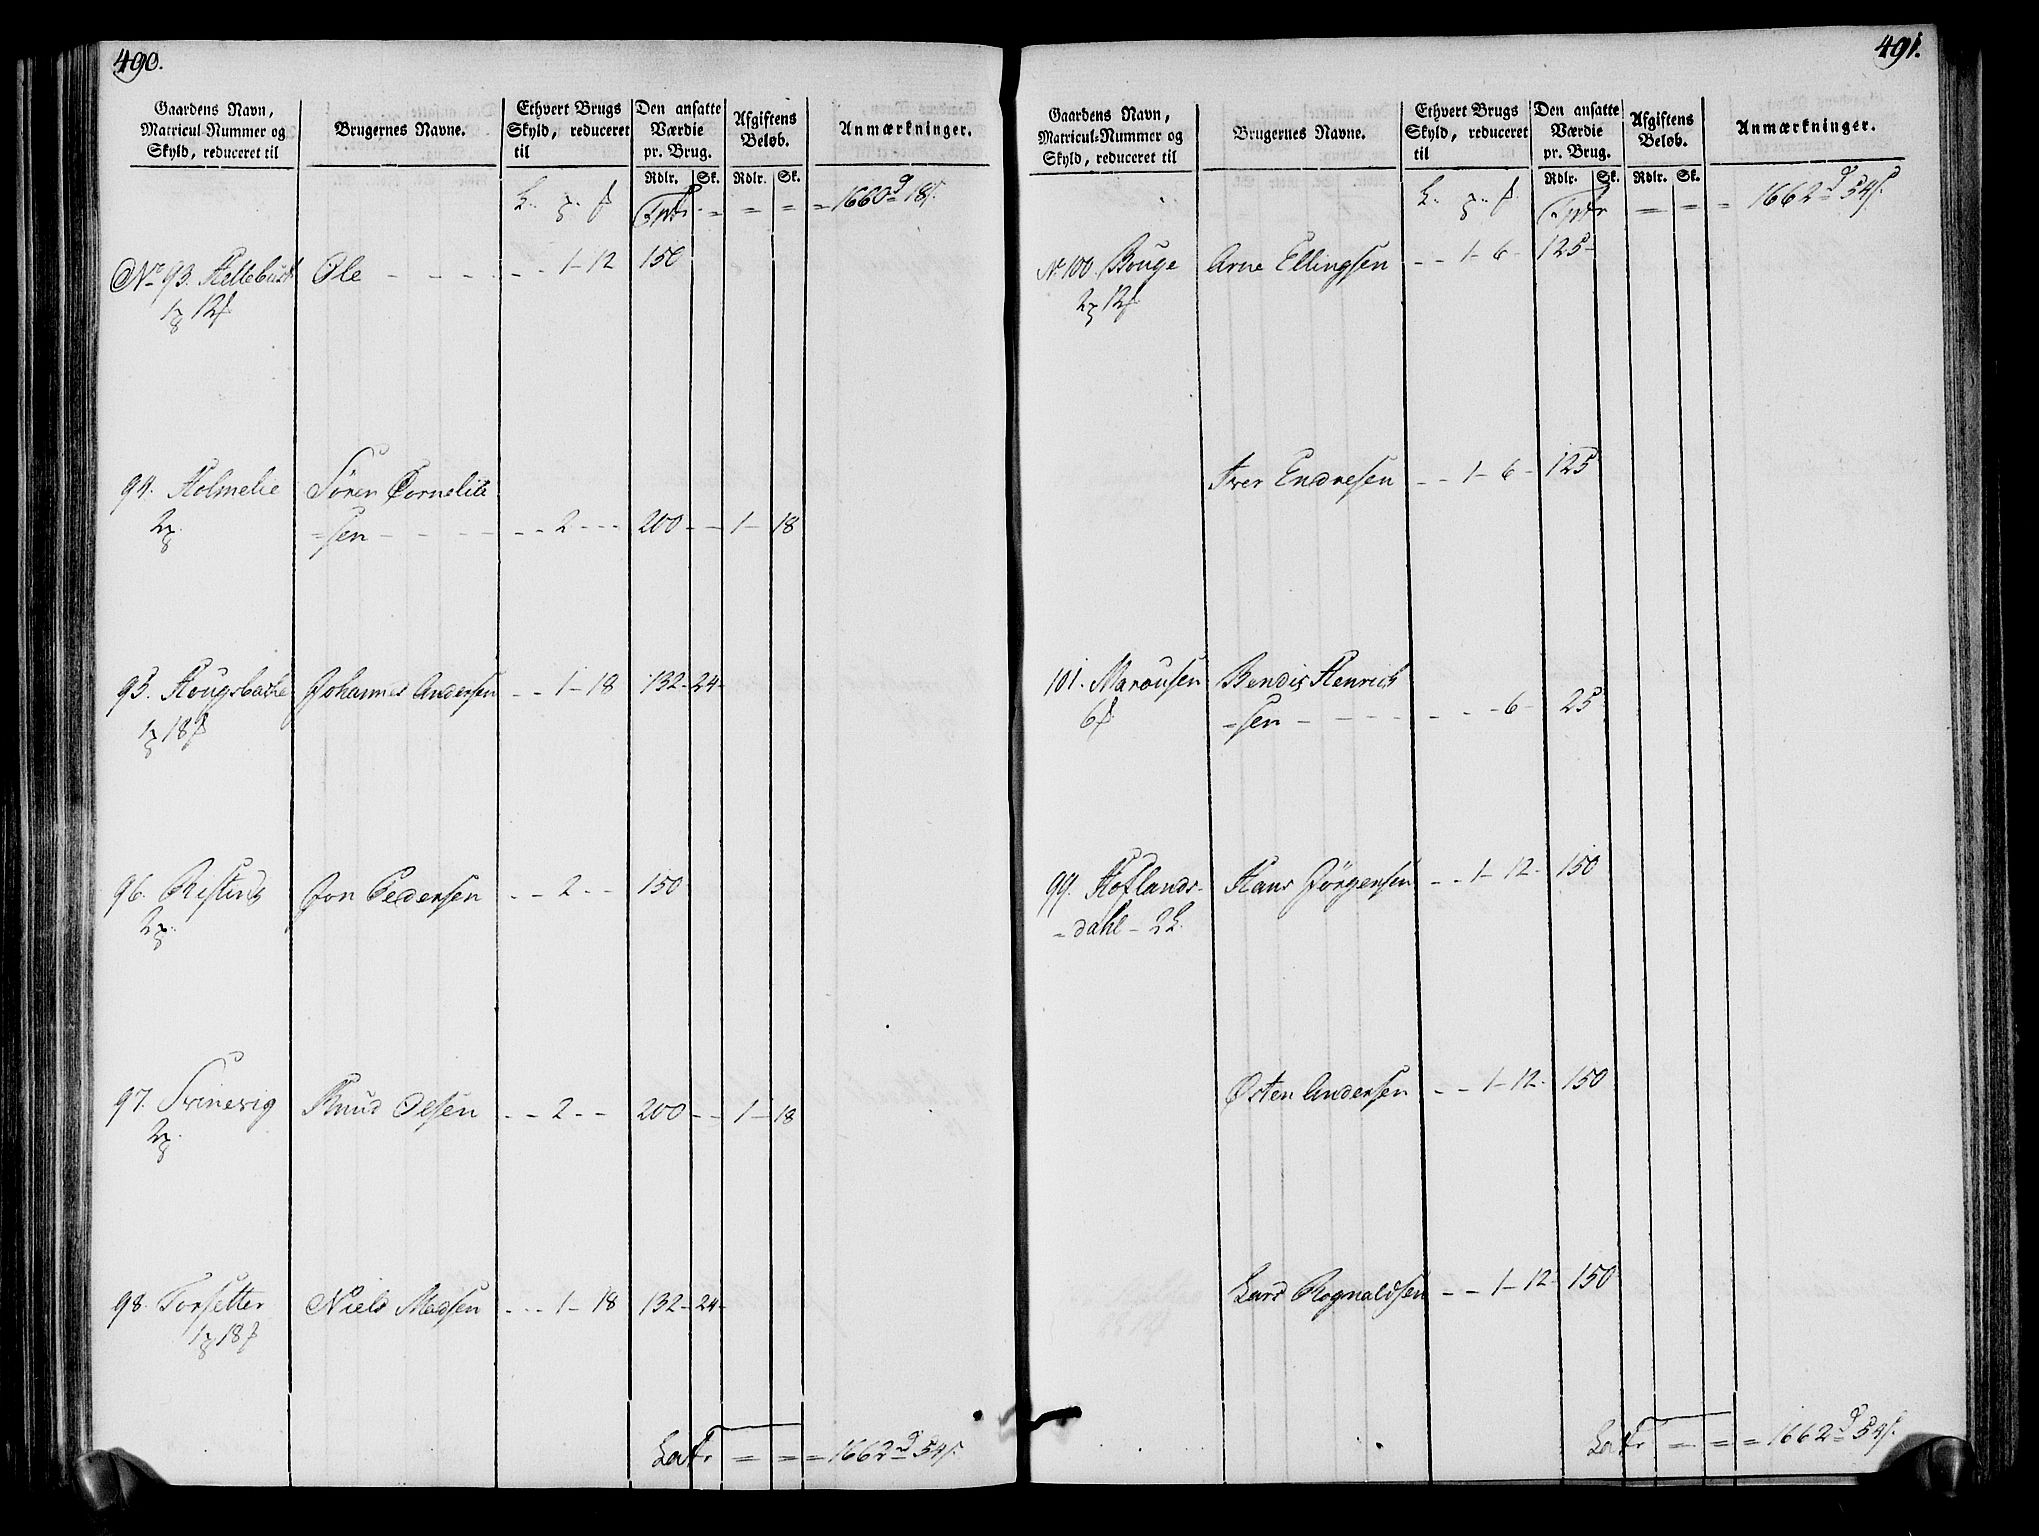 490.
Gaardens Navn, Matricul-Nummer og Skyld, reduceret til
Brugernes Navne.
Ethvert Brugs Skyld, reduceret til
Den ansatte Værdie pr. Brug.
Afgiftens Beløb.
Anmærkninger.
Rdlr. Sk. Rdlr. Sk.
1660 d 18 s.
No 93. Hellebust Ole - - - - - - 1 - 12 150
1 12
94. Holmelie Sören Cornelie
2 =sen - - - - - - 2 - - - 200 - - 1 - 18
95. Hougsbakke Johannes Andersen - - 1 - 18 132 - 24 -
1 18
96. Jon Pedersen - - 2 - - 150
2
97. Svinevig Knud Olsen - - 2 - - 200 - - 1 - 18
2
98. Torsetter Niels Madsen - - - 1 - 18 132 - 24 -
1 18
Latr = = = 1662 d 54 s.
491.
Gaardens Navn, Matricul-Nummer og Skyld, reduceret til
Brugernes Navne.
Ethvert Brugs Skyld, reduceret til
Den ansatte Værdie pr. Brug.
Afgiftens Beløb.
Anmærkninger.
Rdlr. Sk. Rdlr. Sk.
1662 d 54 s.
No 100. Bouge Arne Ellingsen - - 1 - 6 - 125 -
2 12
Iver Endresen - - 1 - 6 - 125
101. Marousen Bendix Henrich
6 =sen - - - - - - - 6 - 25
99. Hoflands- Hans Jörgensen - - 1 - 12 - 150
=dahl - 2
Østen Andersen - - 1 - 12 - 150
Lars Rognaldsen - - 1 - 12 - 150
Latr = = = 1662 d 54 s.